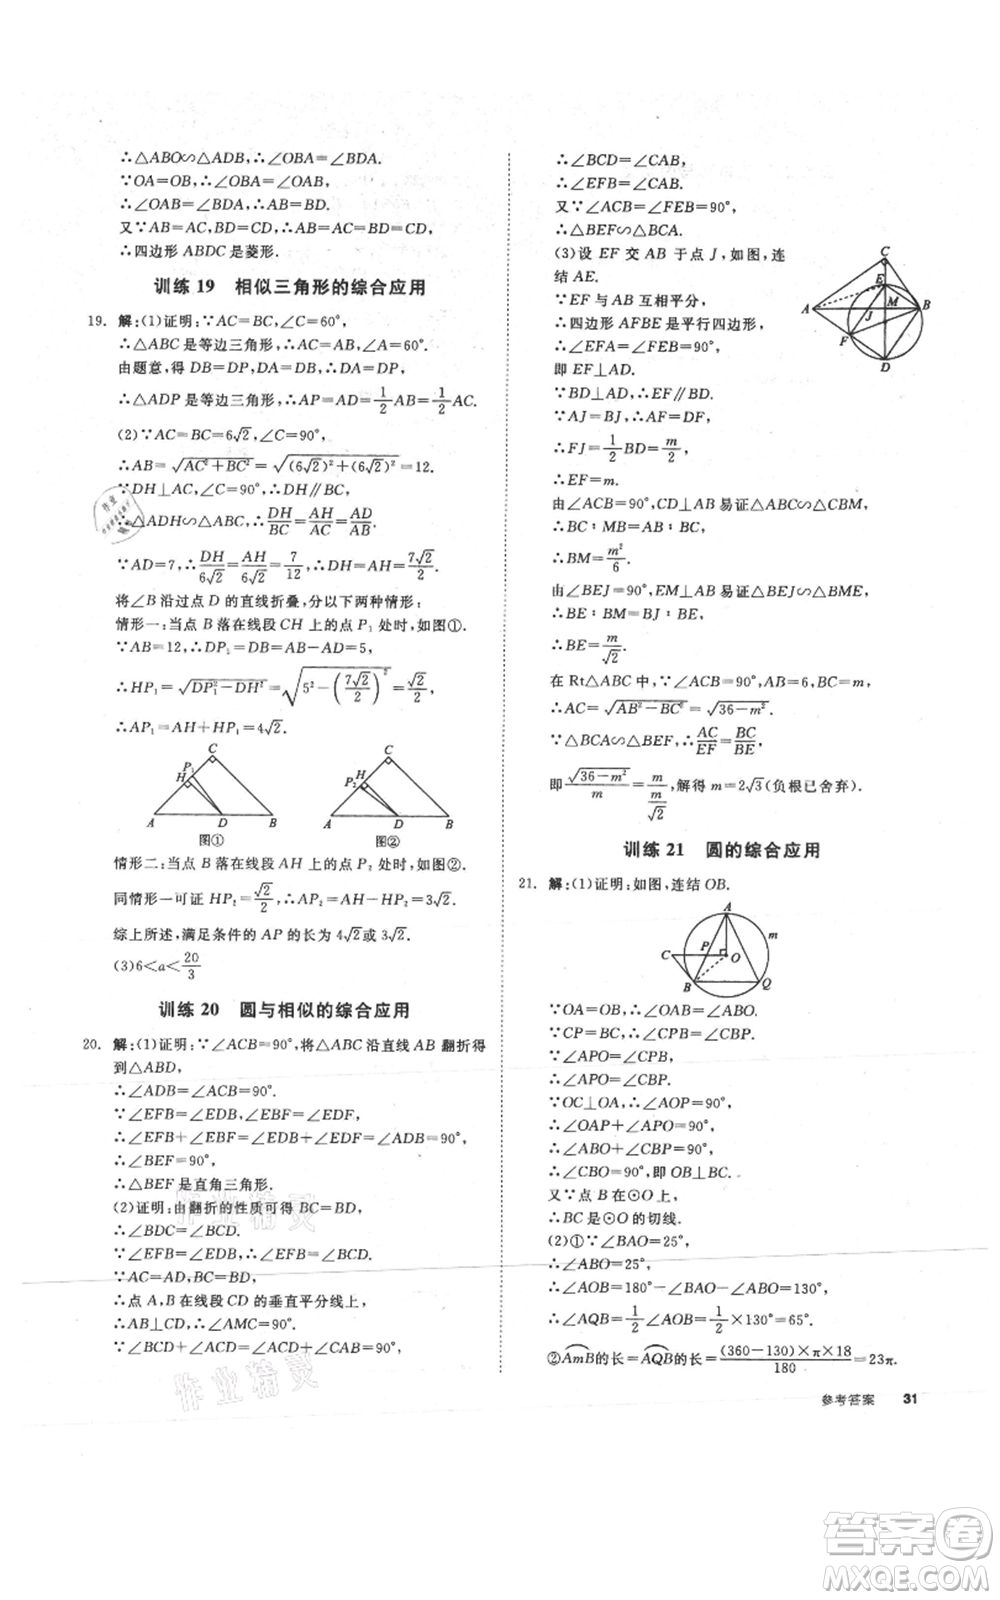 ∴△ABO∽△ADB,∴∠OBA=∠BDA.
∵OA=OB,∴∠OAB=∠OBA.
∴∠OAB=∠BDA,∴AB=BD.
又∵AB=AC,BD=CD,∴AB=AC=BD=CD.
∴四边形 ABDC 是菱形.
训练 19 相似三角形的综合应用
19. 解:(1)证明:∵AC=BC,∠C=60°,
∴△ABC 是等边三角形,∴∠A=60°.
由题意,得 DB=DP,DA=DB,∴DA=DP.
∴△ADP 是等边三角形,∴AP=AD=1/2AB=1/2AC.
(2)∵AC=BC=6√2,∠C=90°,
∴AB=√(AC²+BC²)=√((6√2)²+(6√2)²)=12.
∵DH⊥AC,∠C=90°,∴DH∥BC.
∴△ADH∽△ABC,∴DH/BC=AH/AC=AD/AB.
∵AD=7,∴DH/6√2=AH/6√2=7/12,∴DH=AH=7√2/2.
将∠B沿过点 D 的直线折叠,分以下两种情形:
情形一:当点 B 落在线段 CH 上的点 P₁ 处时,如图①.
∵AB=12,∴DP₁=DB=AB-AD=5,
∴HP₁=√(DP₁²-DH²)=√(5²-(7√2/2)²)=√2/2,
∴AP₁=AH+HP₁=4√2.
C
P₁
H
A D B
图①
C
H
P₂
A D B
图②
情形二:当点 B 落在线段 AH 上的点 P₂ 处时,如图②.
同情形一可证 HP₂=√2/2,∴AP₂=AH-HP₂=3√2.
综上所述,满足条件的 AP 的长为 4√2 或 3√2.
(3)6<a<20/3
训练 20 圆与相似的综合应用
20. 解:(1)证明:∵∠ACB=90°,将△ABC 沿直线 AB 翻折得
到△ABD,
∴∠ADB=∠ACB=90°.
∵∠EFB=∠EDB,∠EBF=∠EDF,
∴∠EFB+∠EBF=∠EDB+∠EDF=∠ADB=90°,
∴∠BEF=90°.
∴△BEF 是直角三角形.
(2)证明:由翻折的性质可得 BC=BD,
∴∠BDC=∠BCD.
∵∠EFB=∠EDB,∴∠EFB=∠BCD.
∵AC=AD,BC=BD,
∴点 A,B 在线段 CD 的垂直平分线上,
∴AB⊥CD,∴∠AMC=90°.
∵∠BCD+∠ACD=∠ACD+∠CAB=90°,
∴∠BCD=∠CAB,
∴∠EFB=∠CAB.
又∵∠ACB=∠FEB=90°,
∴△BEF∽△BCA.
(3)设 EF 交 AB 于点 J,如图,连
结 AE.
∵EF 与 AB 互相平分,
∴四边形 AFBE 是平行四边形,
∴∠EFA=∠FEB=90°,
即 EF⊥AD.
∵BD⊥AD,∴EF∥BD.
∵AJ=BJ,∴AF=DF,
∴FJ=1/2BD=m/2,
∴EF=m.
由∠ACB=90°,CD⊥AB 易证△ABC∽△CBM,
∴BC∶MB=AB∶BC,
∴BM=m²/6.
由∠BEJ=90°,EM⊥AB 易证△BEJ∽△BME,
∴BE∶BM=BJ∶BE,
∴BE=m/√2.
在 Rt△ABC 中,∵∠ACB=90°,AB=6,BC=m,
∴AC=√(AB²-BC²)=√(36-m²).
∵△BCA∽△BEF,∴AC/EF=BC/BE,
即√(36-m²)/m=m/(m/√2),解得 m=2√3(负根已舍弃).
C
E
A M B
J
F
D
训练 21 圆的综合应用
21. 解:(1)证明:如图,连结 OB.
A
m
P
C O
B Q
∵OA=OB,∴∠OAB=∠OBA.
∵CP=CB,∴∠CPB=∠CBP.
∵∠APO=∠CPB,
∴∠APO=∠CBP.
∵OC⊥OA,∴∠AOP=90°,
∴∠OAP+∠APO=90°,
∴∠ABO+∠CBP=90°,
∴∠CBO=90°,即 OB⊥BC.
又∵点 B 在⊙O 上,
∴BC 是⊙O 的切线.
(2)①∵∠BAO=25°,
∴∠ABO=25°,
∴∠AOB=180°-∠BAO-∠ABO=130°,
∴∠AQB=1/2∠AOB=1/2×130°=65°.
②AmB的长=AQB的长=(360-130)×π×18/180=23π.
参考答案 31
作业精灵
作业精灵
答案卷
MXQE.COM